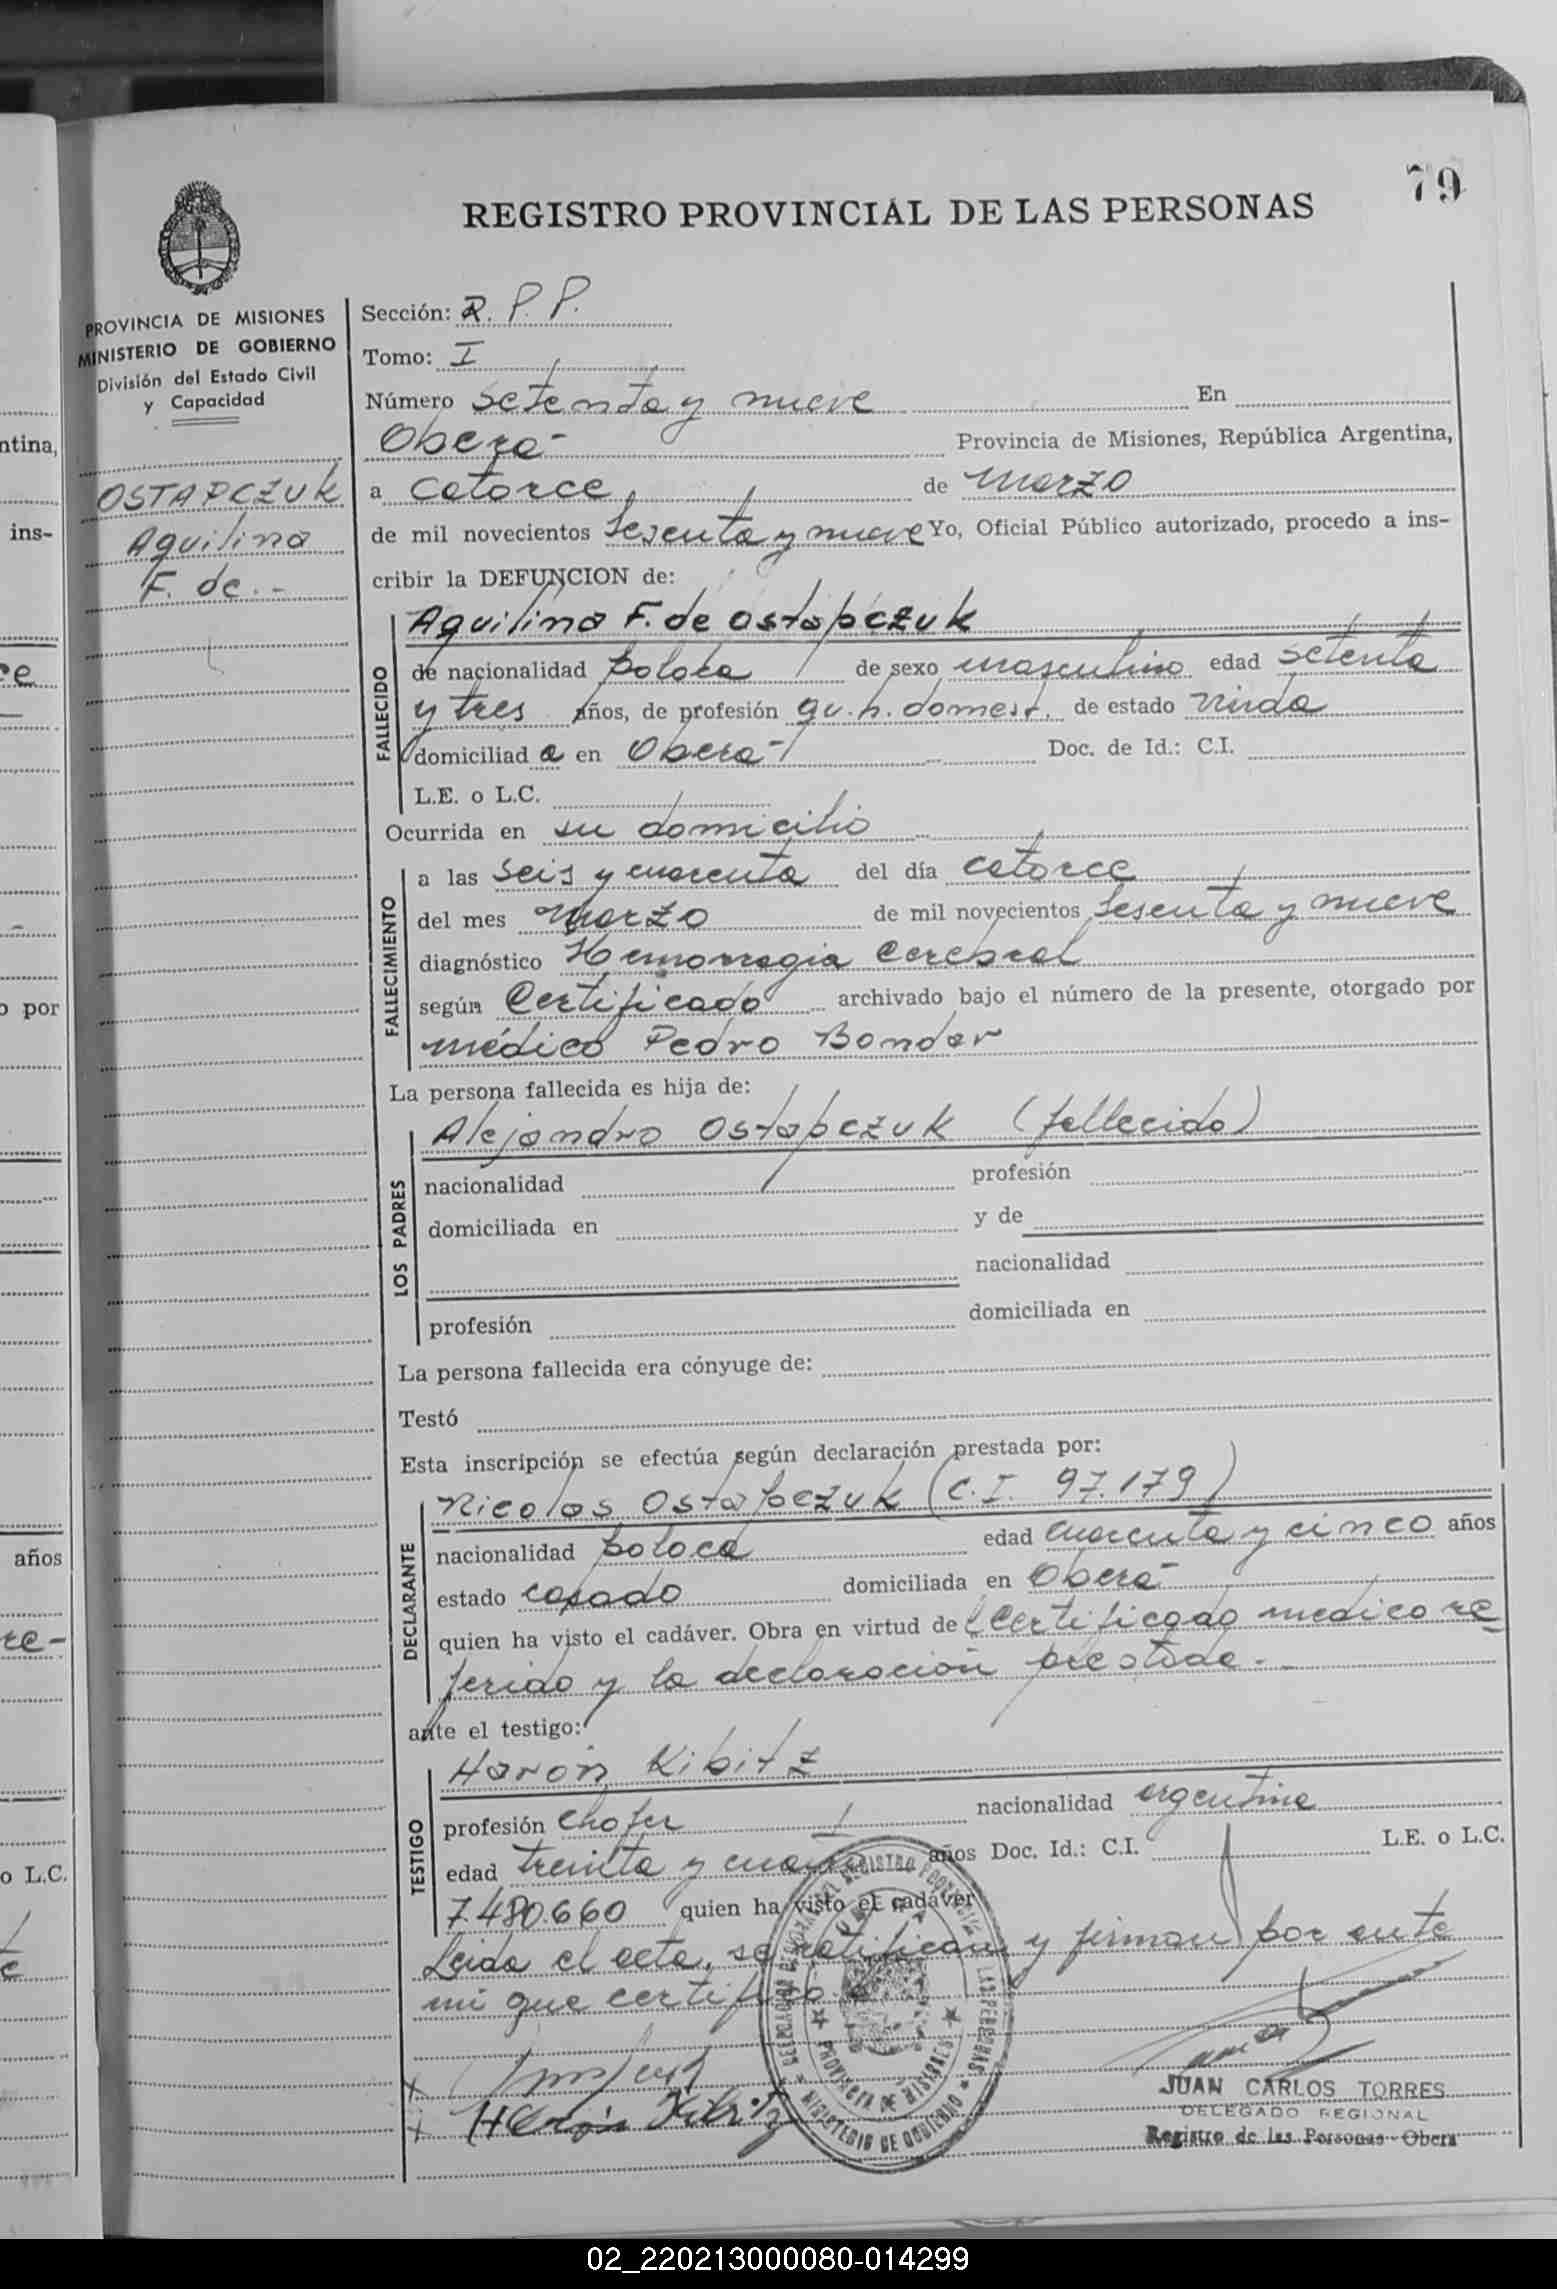 79
REGISTRO PROVINCIAL DE LAS PERSONAS
PROVINCIA DE MISIONES
MINISTERIO DE GOBIERNO
División del Estado Civil
y Capacidad
OSTAPCZUK
Aquilina
F. de.-
Sección: R. P. P.
Tomo: I
Número setenta y nueve En
Oberá- Provincia de Misiones, República Argentina,
a catorce de marzo
de mil novecientos sesenta y nueve Yo, Oficial Público autorizado, procedo a ins-
cribir la DEFUNCION de:
FALLECIDO
Aquilina F. de Ostapczuk
de nacionalidad polaca de sexo masculino edad setenta
y tres años, de profesión qu. h. domest. de estado viuda
domiciliad a en Oberá- Doc. de Id.: C.I.
L.E. o L.C.
Ocurrida en su domicilio
FALLECIMIENTO
a las seis y cuarenta del día catorce
del mes marzo de mil novecientos sesenta y nueve
diagnóstico Hemorragia Cerebral
según Certificado archivado bajo el número de la presente, otorgado por
médico Pedro Bondar
La persona fallecida es hija de:
LOS PADRES
Alejandro Ostapczuk (fallecido)
nacionalidad profesión
domiciliada en y de
nacionalidad
profesión domiciliada en
La persona fallecida era cónyuge de:
Testó
Esta inscripción se efectúa según declaración prestada por:
DECLARANTE
Nicolas Ostapczuk (C.I. 97.179)
nacionalidad polaca edad cuarenta y cinco años
estado casado domiciliada en Oberá-
quien ha visto el cadáver. Obra en virtud del Certificado medico re
ferido y la declaración prestada.-
ante el testigo:
TESTIGO
Harón Kibitz
profesión chofer nacionalidad argentina
edad treinta y años Doc. Id.: C.I. L.E. o L.C.
7.480.660 quien ha visto el cadáver
Leida el acta, se ratifican y firman por ante
mi que certifico.
JUAN CARLOS TORRES
DELEGADO REGIONAL
Registro de las Personas - Obera
PROVINCIA DE MISIONES
MINISTERIO DE GOBIERNO
ntina,
ins-
ce
o por
años
re-
o L.C.
02_220213000080-014299